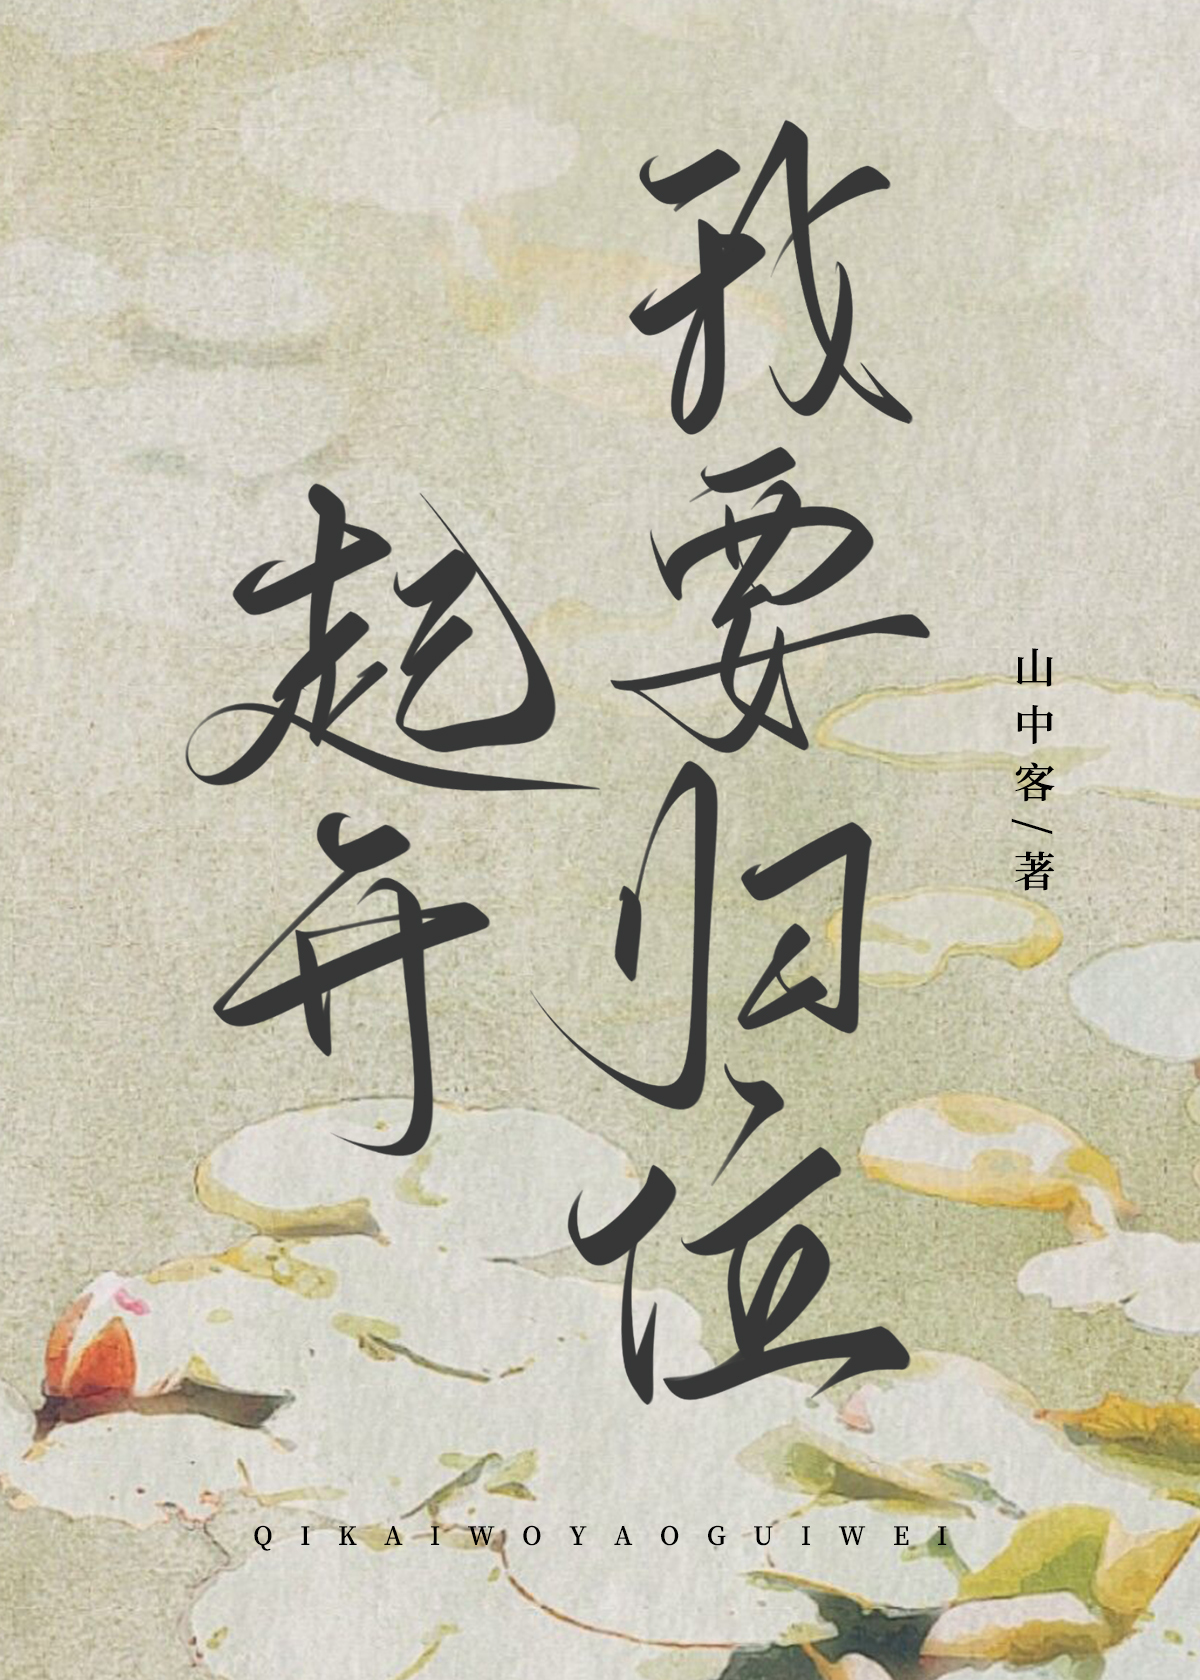 起开
我要归位
山中客/著
QIKAIWOYAOGUIWEI